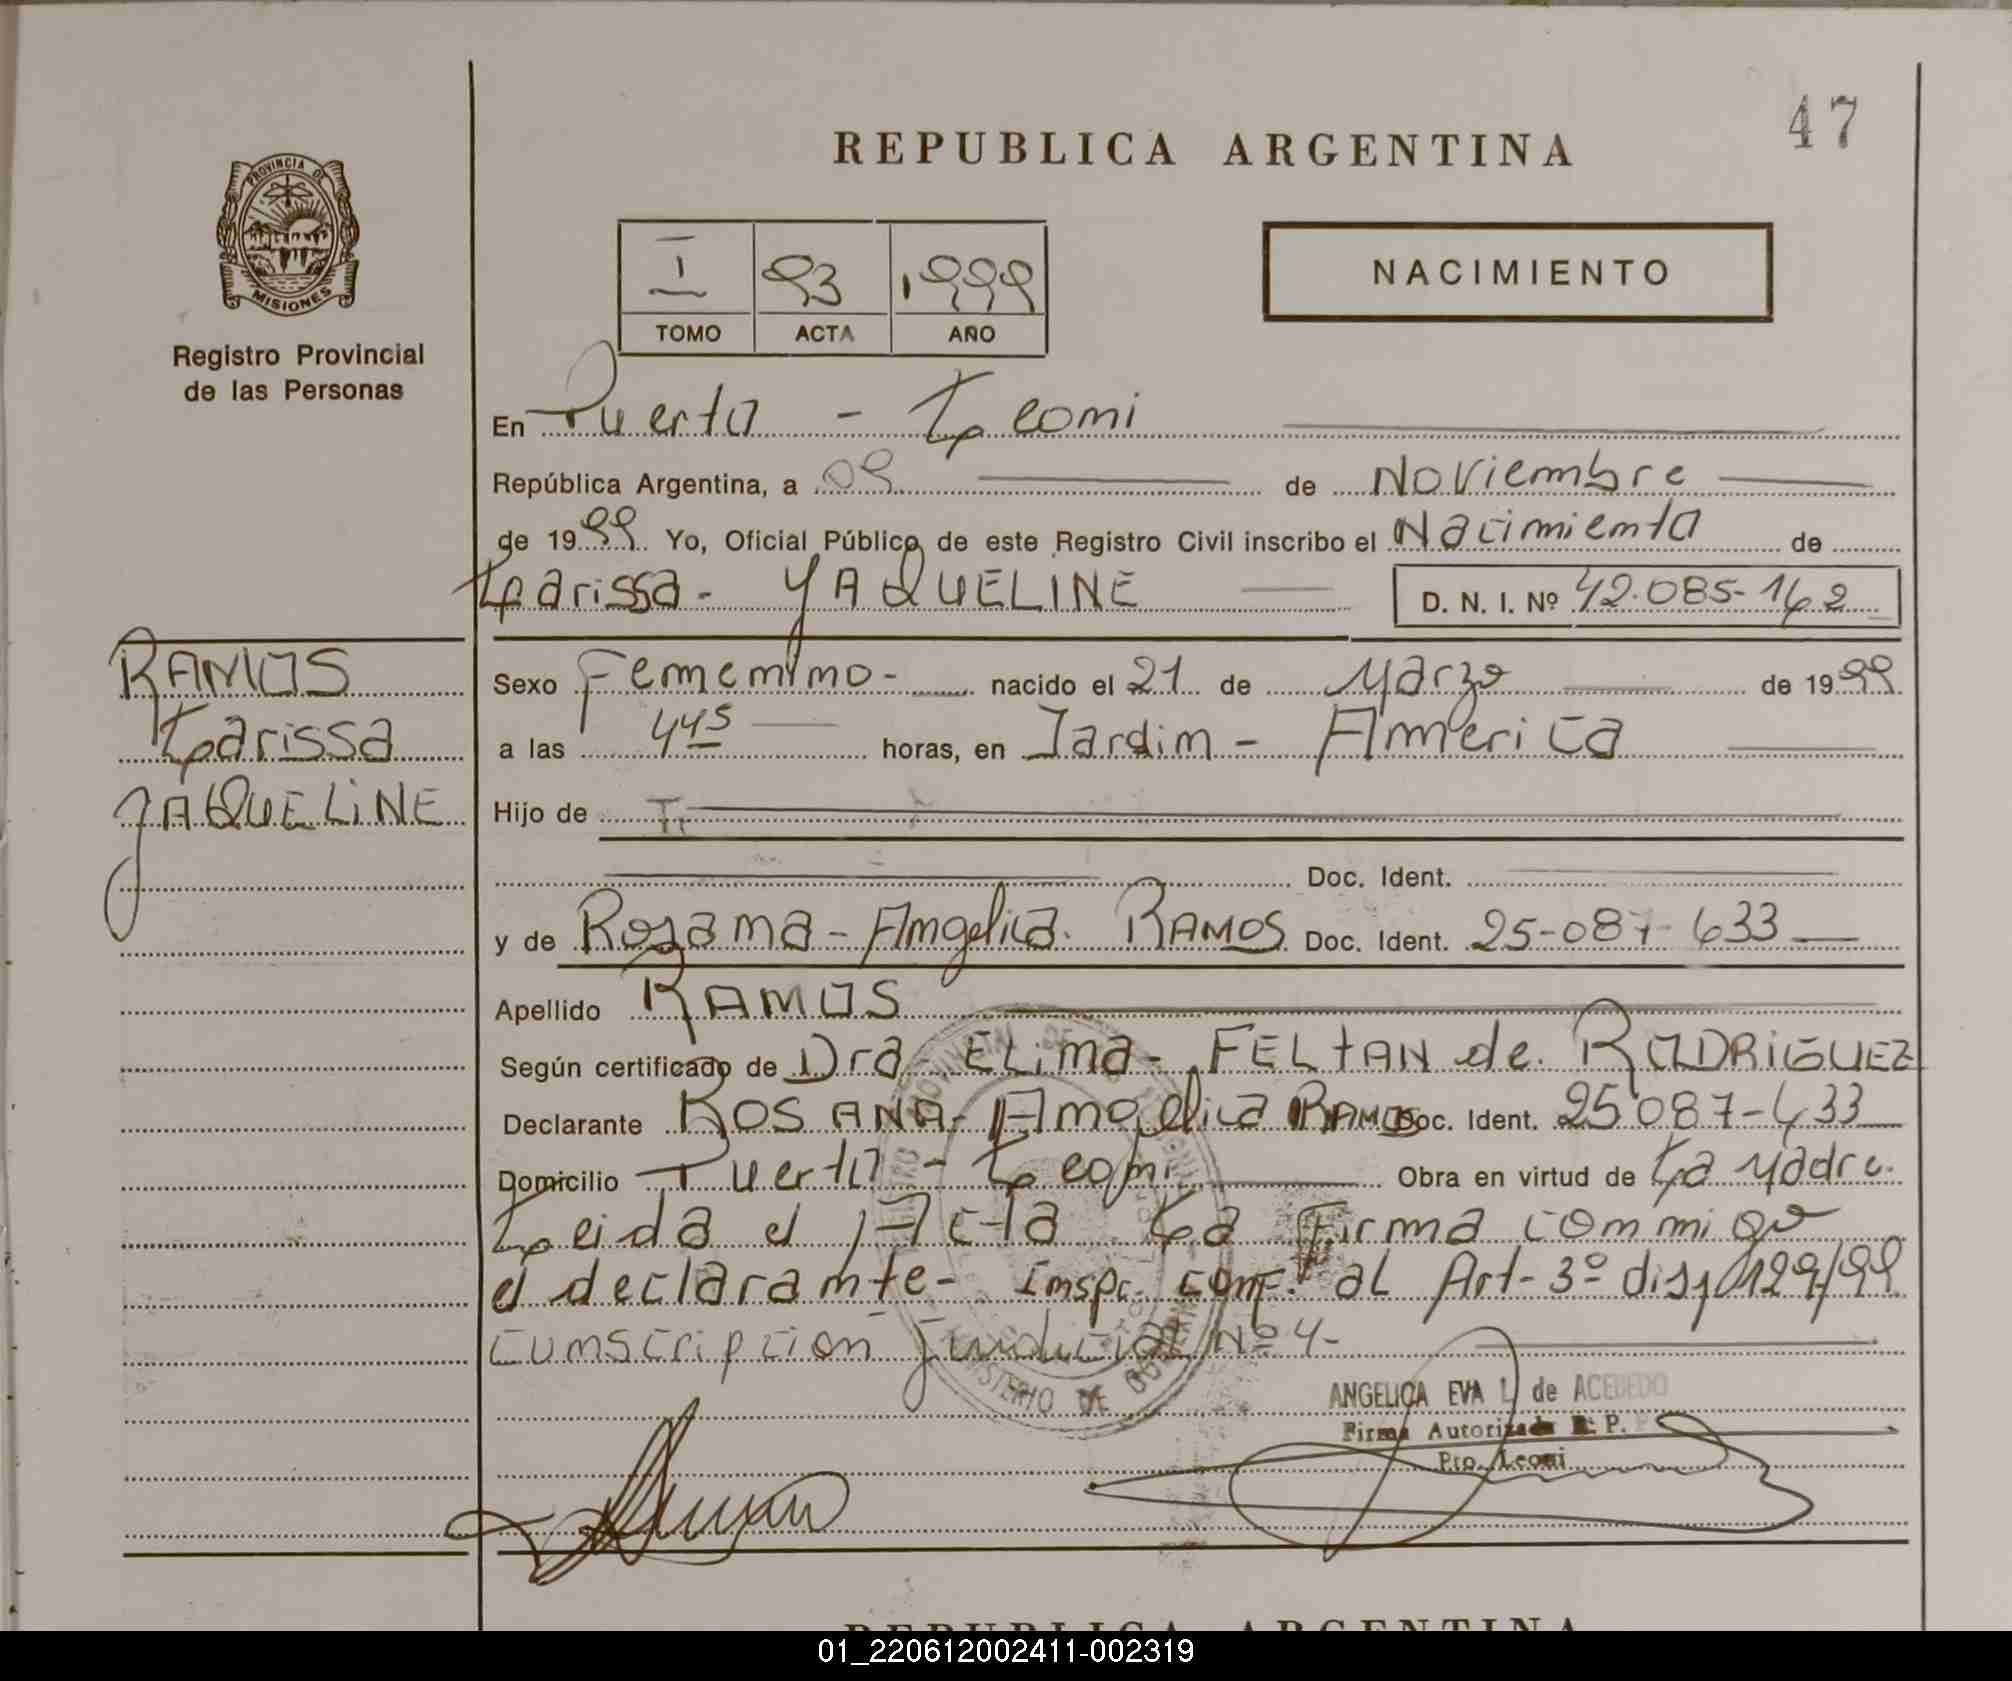 47
REPUBLICA ARGENTINA
PROVINCIA DE
MISIONES
Registro Provincial
de las Personas
I 93 1999
TOMO ACTA AÑO
NACIMIENTO
En Puerto - Leoni
República Argentina, a 09 de Noviembre
de 1999 Yo, Oficial Público de este Registro Civil inscribo el Nacimiento de
Larissa - YAQUELINE D. N. I. Nº 42.085-162
RAMOS
Larissa
JAQUELINE
Sexo Femenino - nacido el 21 de Marzo de 1999
a las 445 horas, en Jardin - America
Hijo de
Doc. Ident.
y de Rosana - Angelica. RAMOS Doc. Ident. 25-087-633
Apellido RAMOS
Según certificado de Dra ELina - FELTAN de RODRIGUEZ
Declarante ROSANA - Angelica RAMOS Doc. Ident. 25087-633
Domicilio Puerto - Leoni Obra en virtud de La Madre.
Leida el Acta La Firma conmigo
el declarante - Inspc. conf. al Art - 3º disp 129/99
cunscripcion Juducial Nº 4 -
ANGELICA EVA L. de ACEBEDO
Firma Autorizada R. P.
Pto. Leoni
REPUBLICA ARGENTINA
01_220612002411-002319